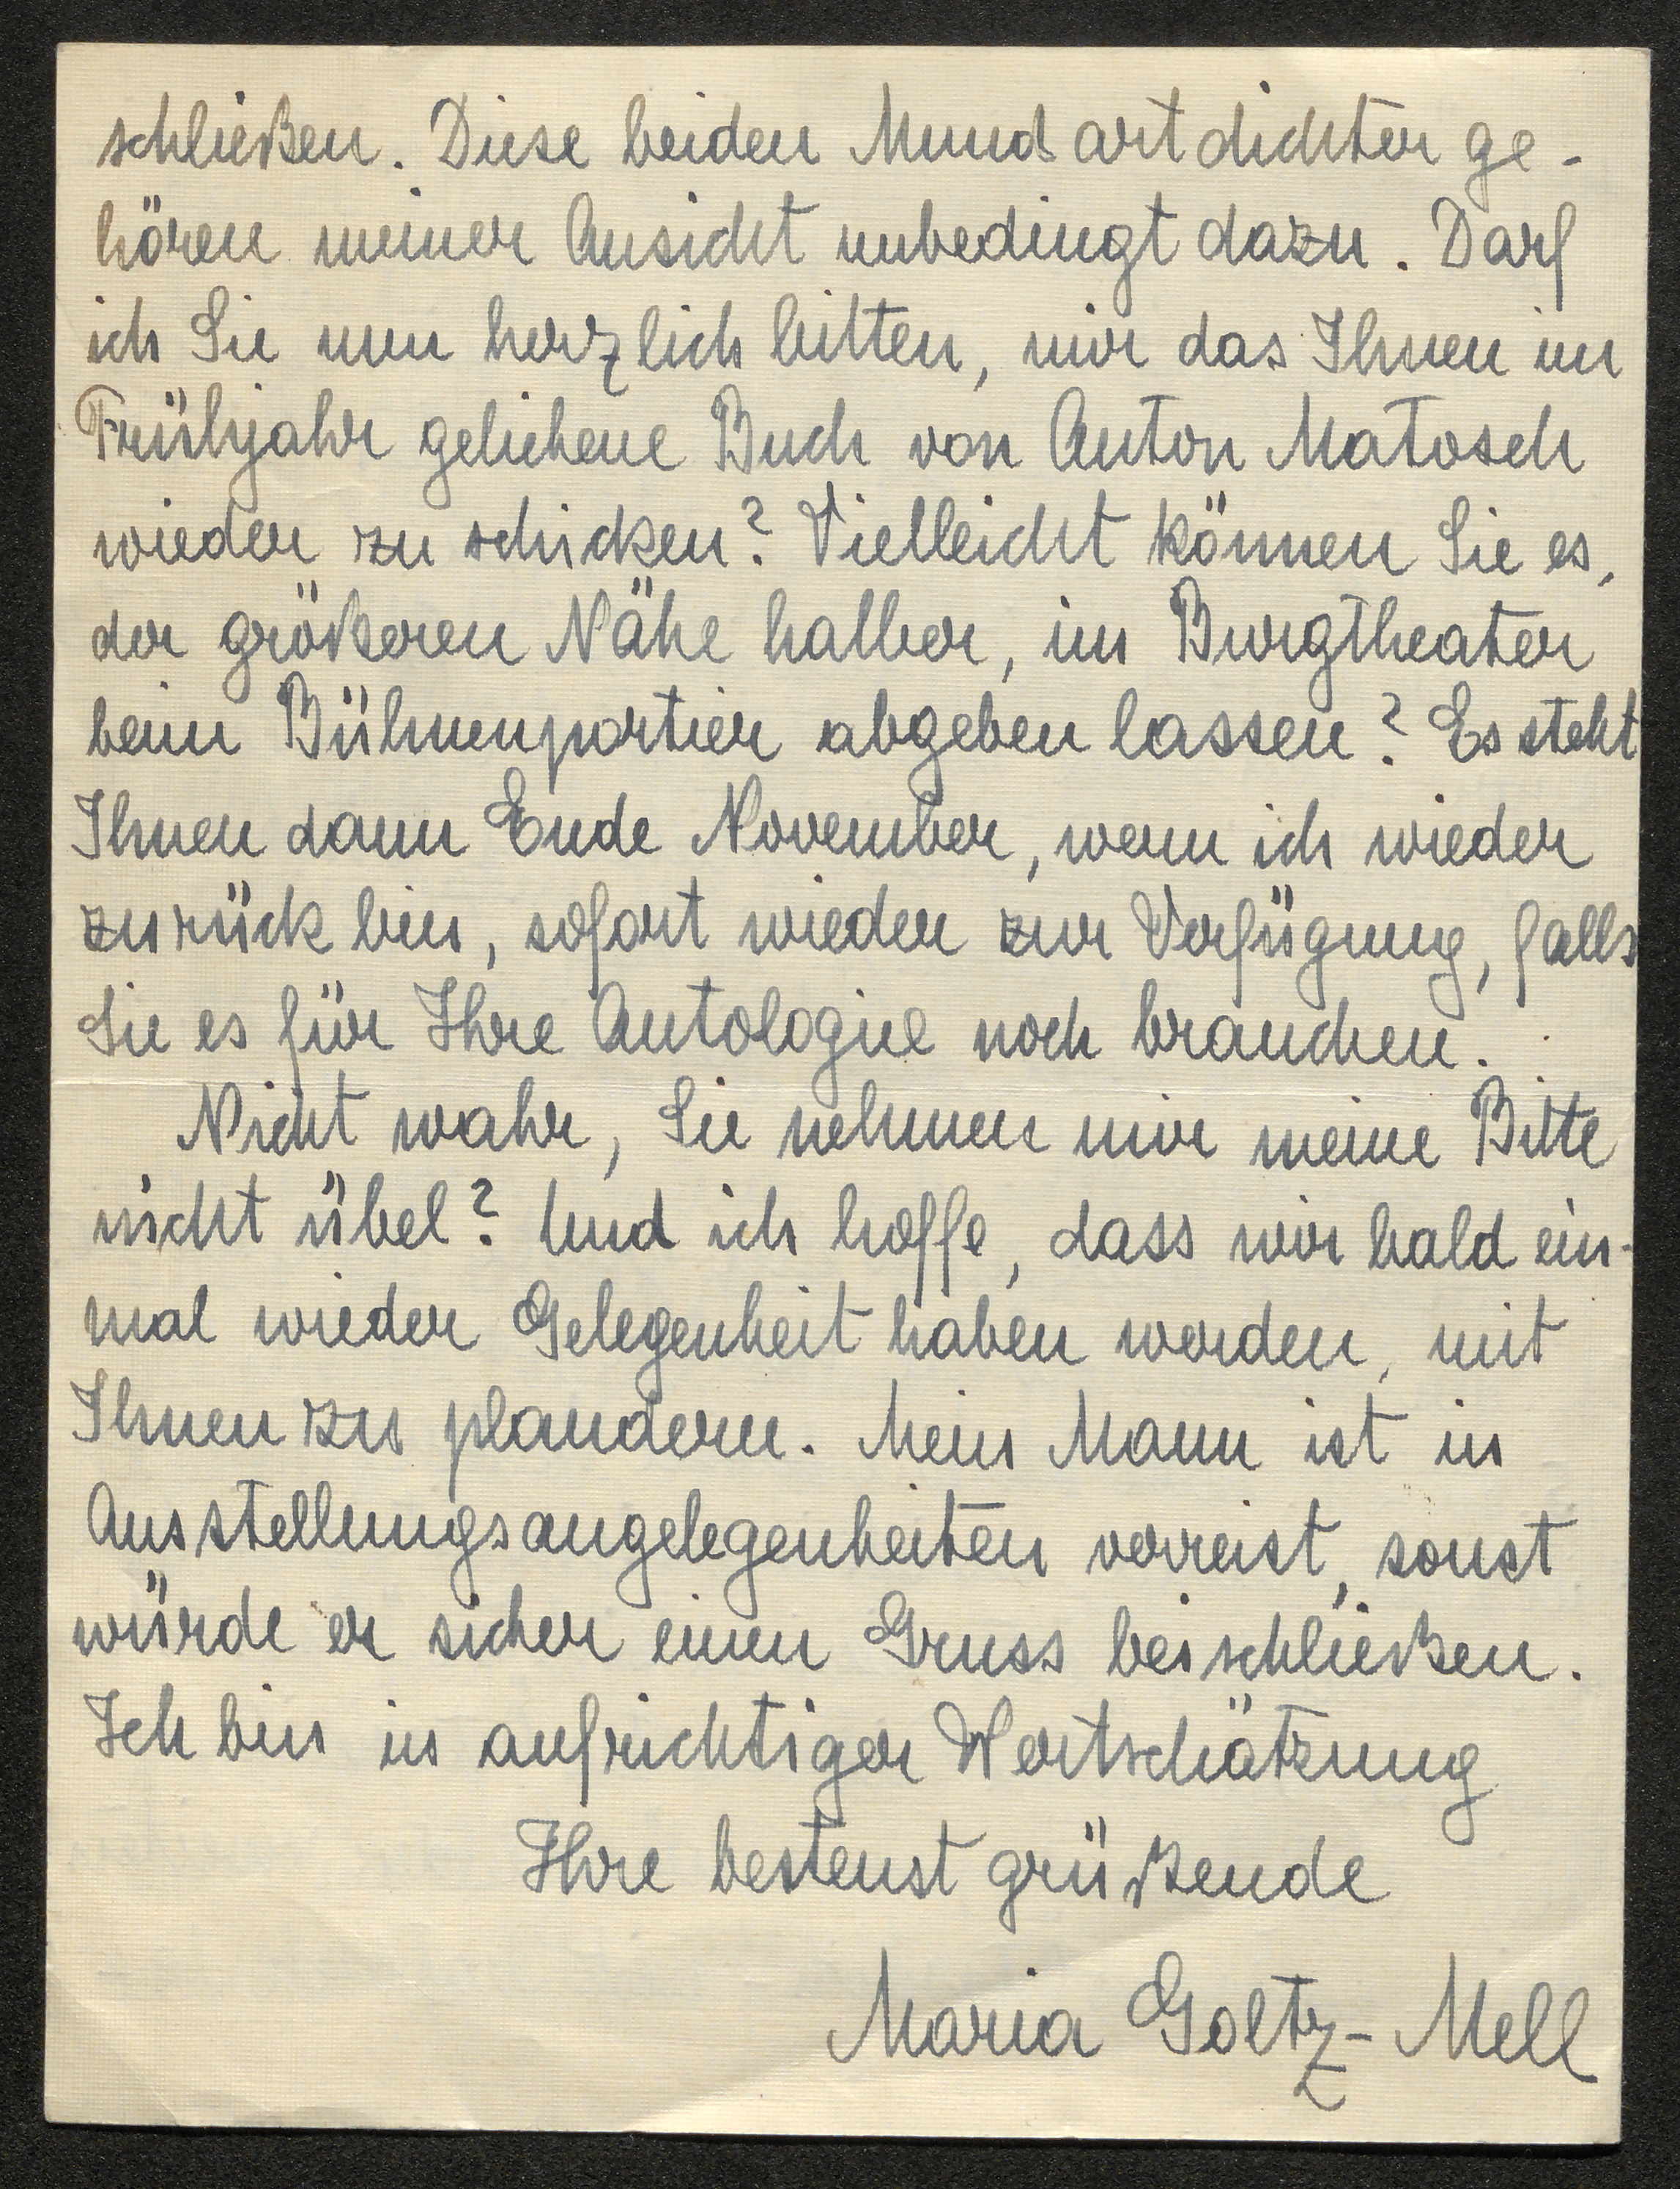 schließen. Diese beiden Mundartdichter ge-
hören meiner Ansicht unbedingt dazu. Darf
ich Sie nun herzlich bitten, mir das Ihnen im
Frühjahr geliehene Buch von Anton Matosch
wieder zu schicken? Vielleicht können Sie es,
der größeren Nähe halber, im Burgtheater
beim Bühnenportier abgeben lassen? Es steht
Ihnen dann Ende November, wenn ich wieder
zurück bin, sofort wieder zur Verfügung, falls
Sie es für Ihre Antologie noch brauchen.
Nicht wahr, Sie nehmen mir meine Bitte
nicht übel? Und ich hoffe, dass wir bald ein-
mal wieder Gelegenheit haben werden, mit
Ihnen zu plaudern. Mein Mann ist in
Ausstellungsangelegenheiten verreist, sonst
würde er sicher einen Gruss beischließen.
Ich bin in aufrichtiger Wertschätzung
Ihre bestenst grüßende
Maria Goltz-Mell